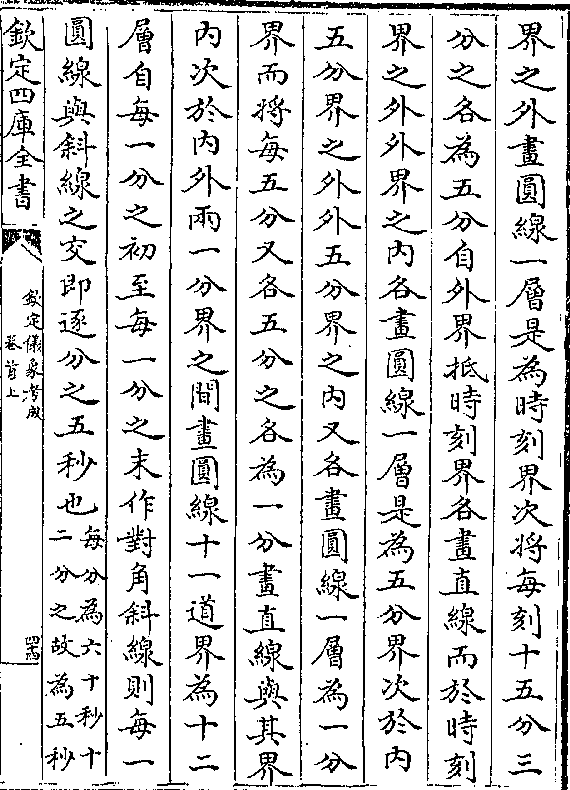 界之外畫圓線一層是為時刻界次將每刻十五分三
分之各為五分自外界抵時刻界各畫直線而於時刻
界之外外界之内各畫圓線一層是為五分界次於内
五分界之外外五分界之内又各畫圓線一層為一分
界而將每五分又各五分之各為一分畫直線與其界
内次於内外兩一分界之間畫圓線十一道界為十二
層自每一分之初至每一分之末作對角斜線則每一
圓線與斜線之交即逐分之五秒也每分為六十秒十
二分之故為五秒
欽定四庫全書
欽定儀象考成
卷首上